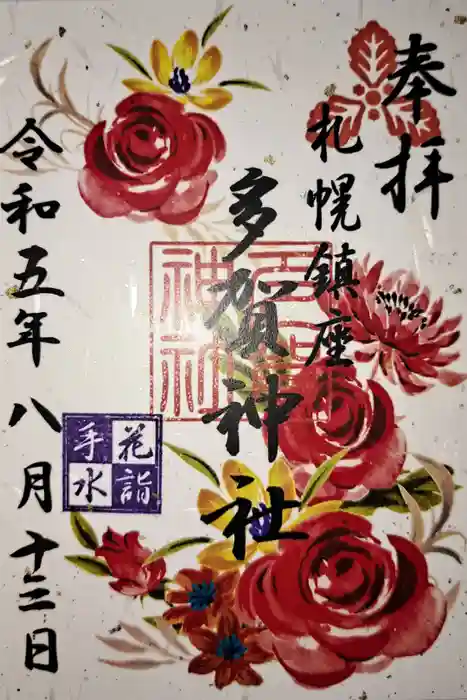 奉拝
札幌鎮座
多賀神社
神社
花詣
手水
令和五年八月十三日